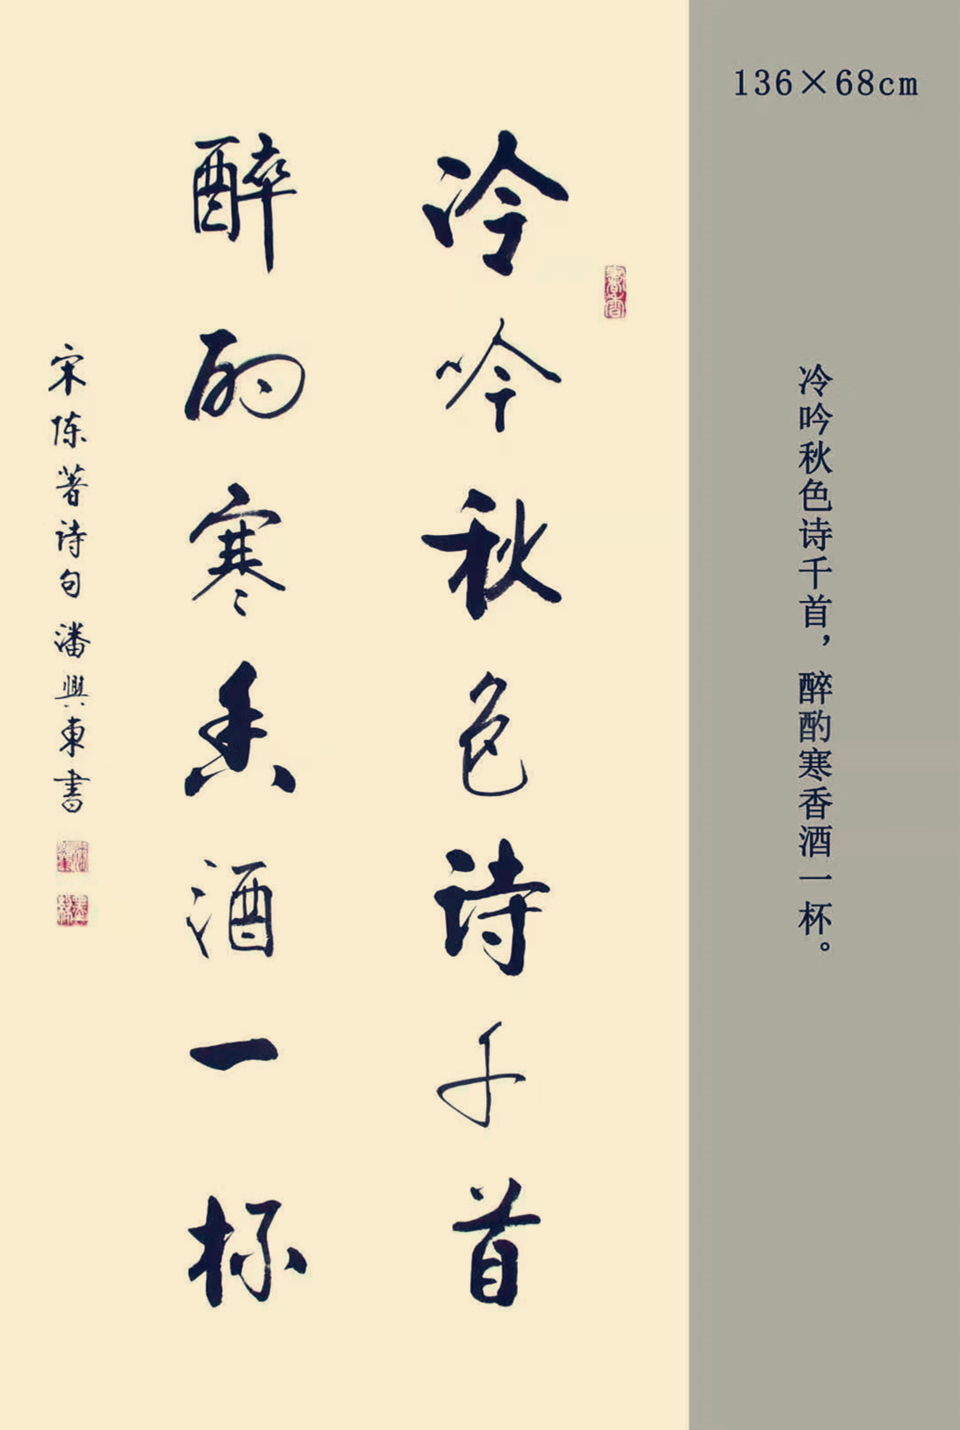 136×68cm
冷吟秋色诗千首，醉酌寒香酒一杯。
冷吟秋色诗千首
醉酌寒香酒一杯
宋陈著诗句潘興東書